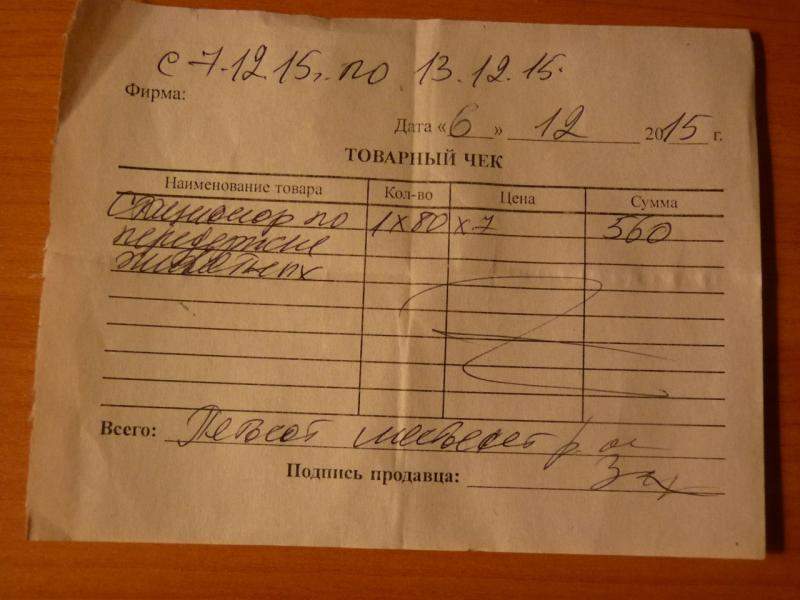 с 7.12.15г. по 13.12.15.
Фирма:
Дата «6» 12 2015 г.
ТОВАРНЫЙ ЧЕК
Наименование товара Кол-во Цена Сумма
Стационар по 1х80 х7 560
передержке
животных
Всего: Пятьсот шестьдесят р. оо
Подпись продавца: